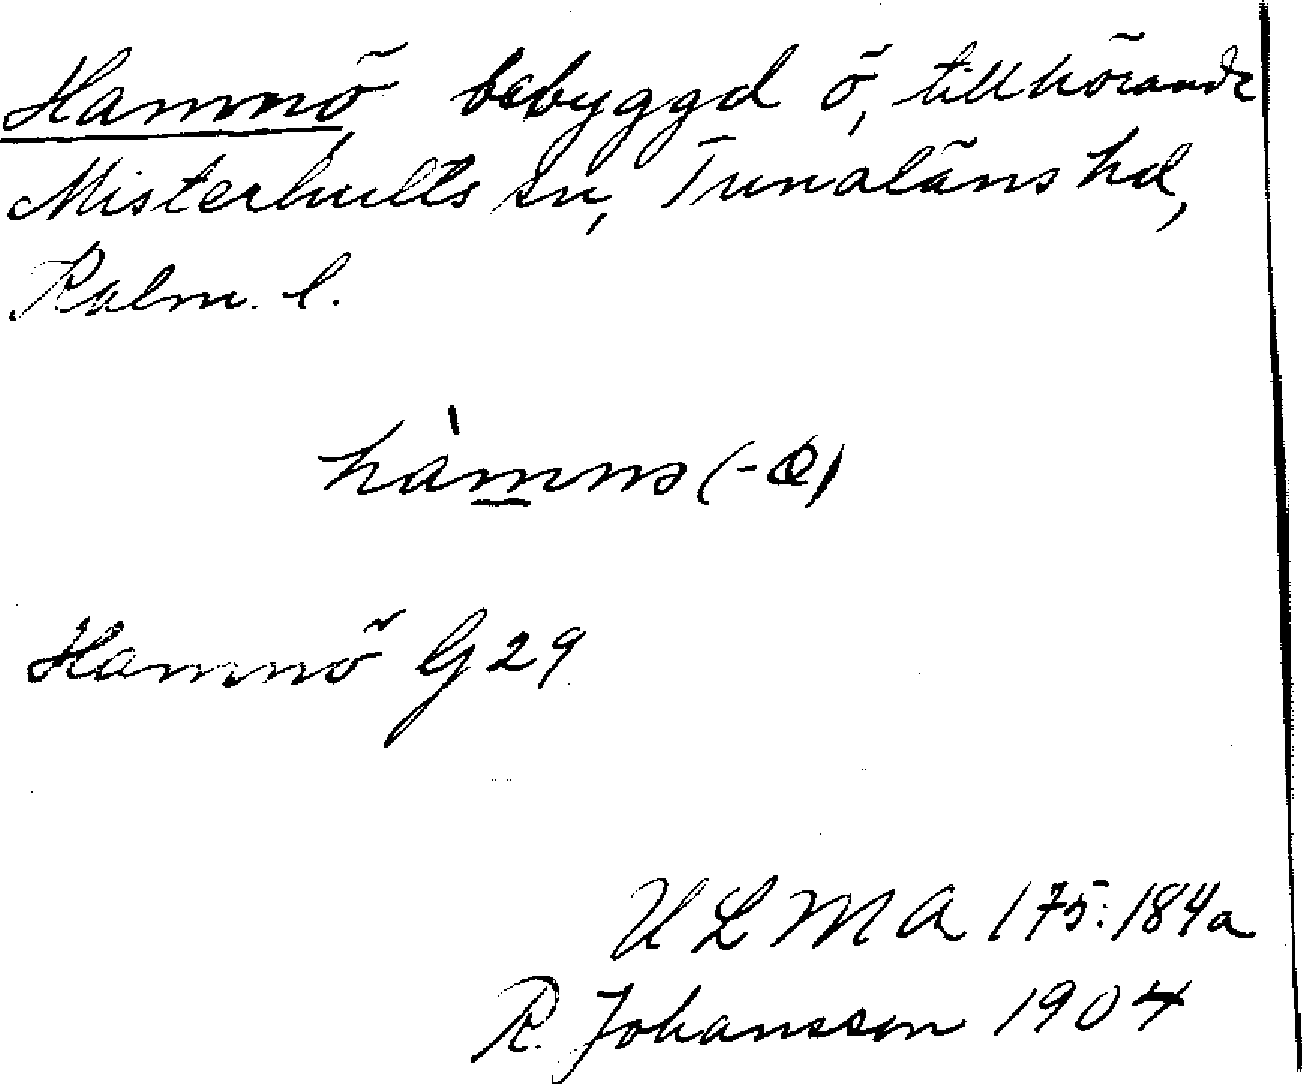 Hamnö, bebyggd ö, tillhörande
Misterhults sn, Tunaläns hd,
Kalm. l.
Hamnö G 29
ULMA 175:184a
R. Johansson 1904